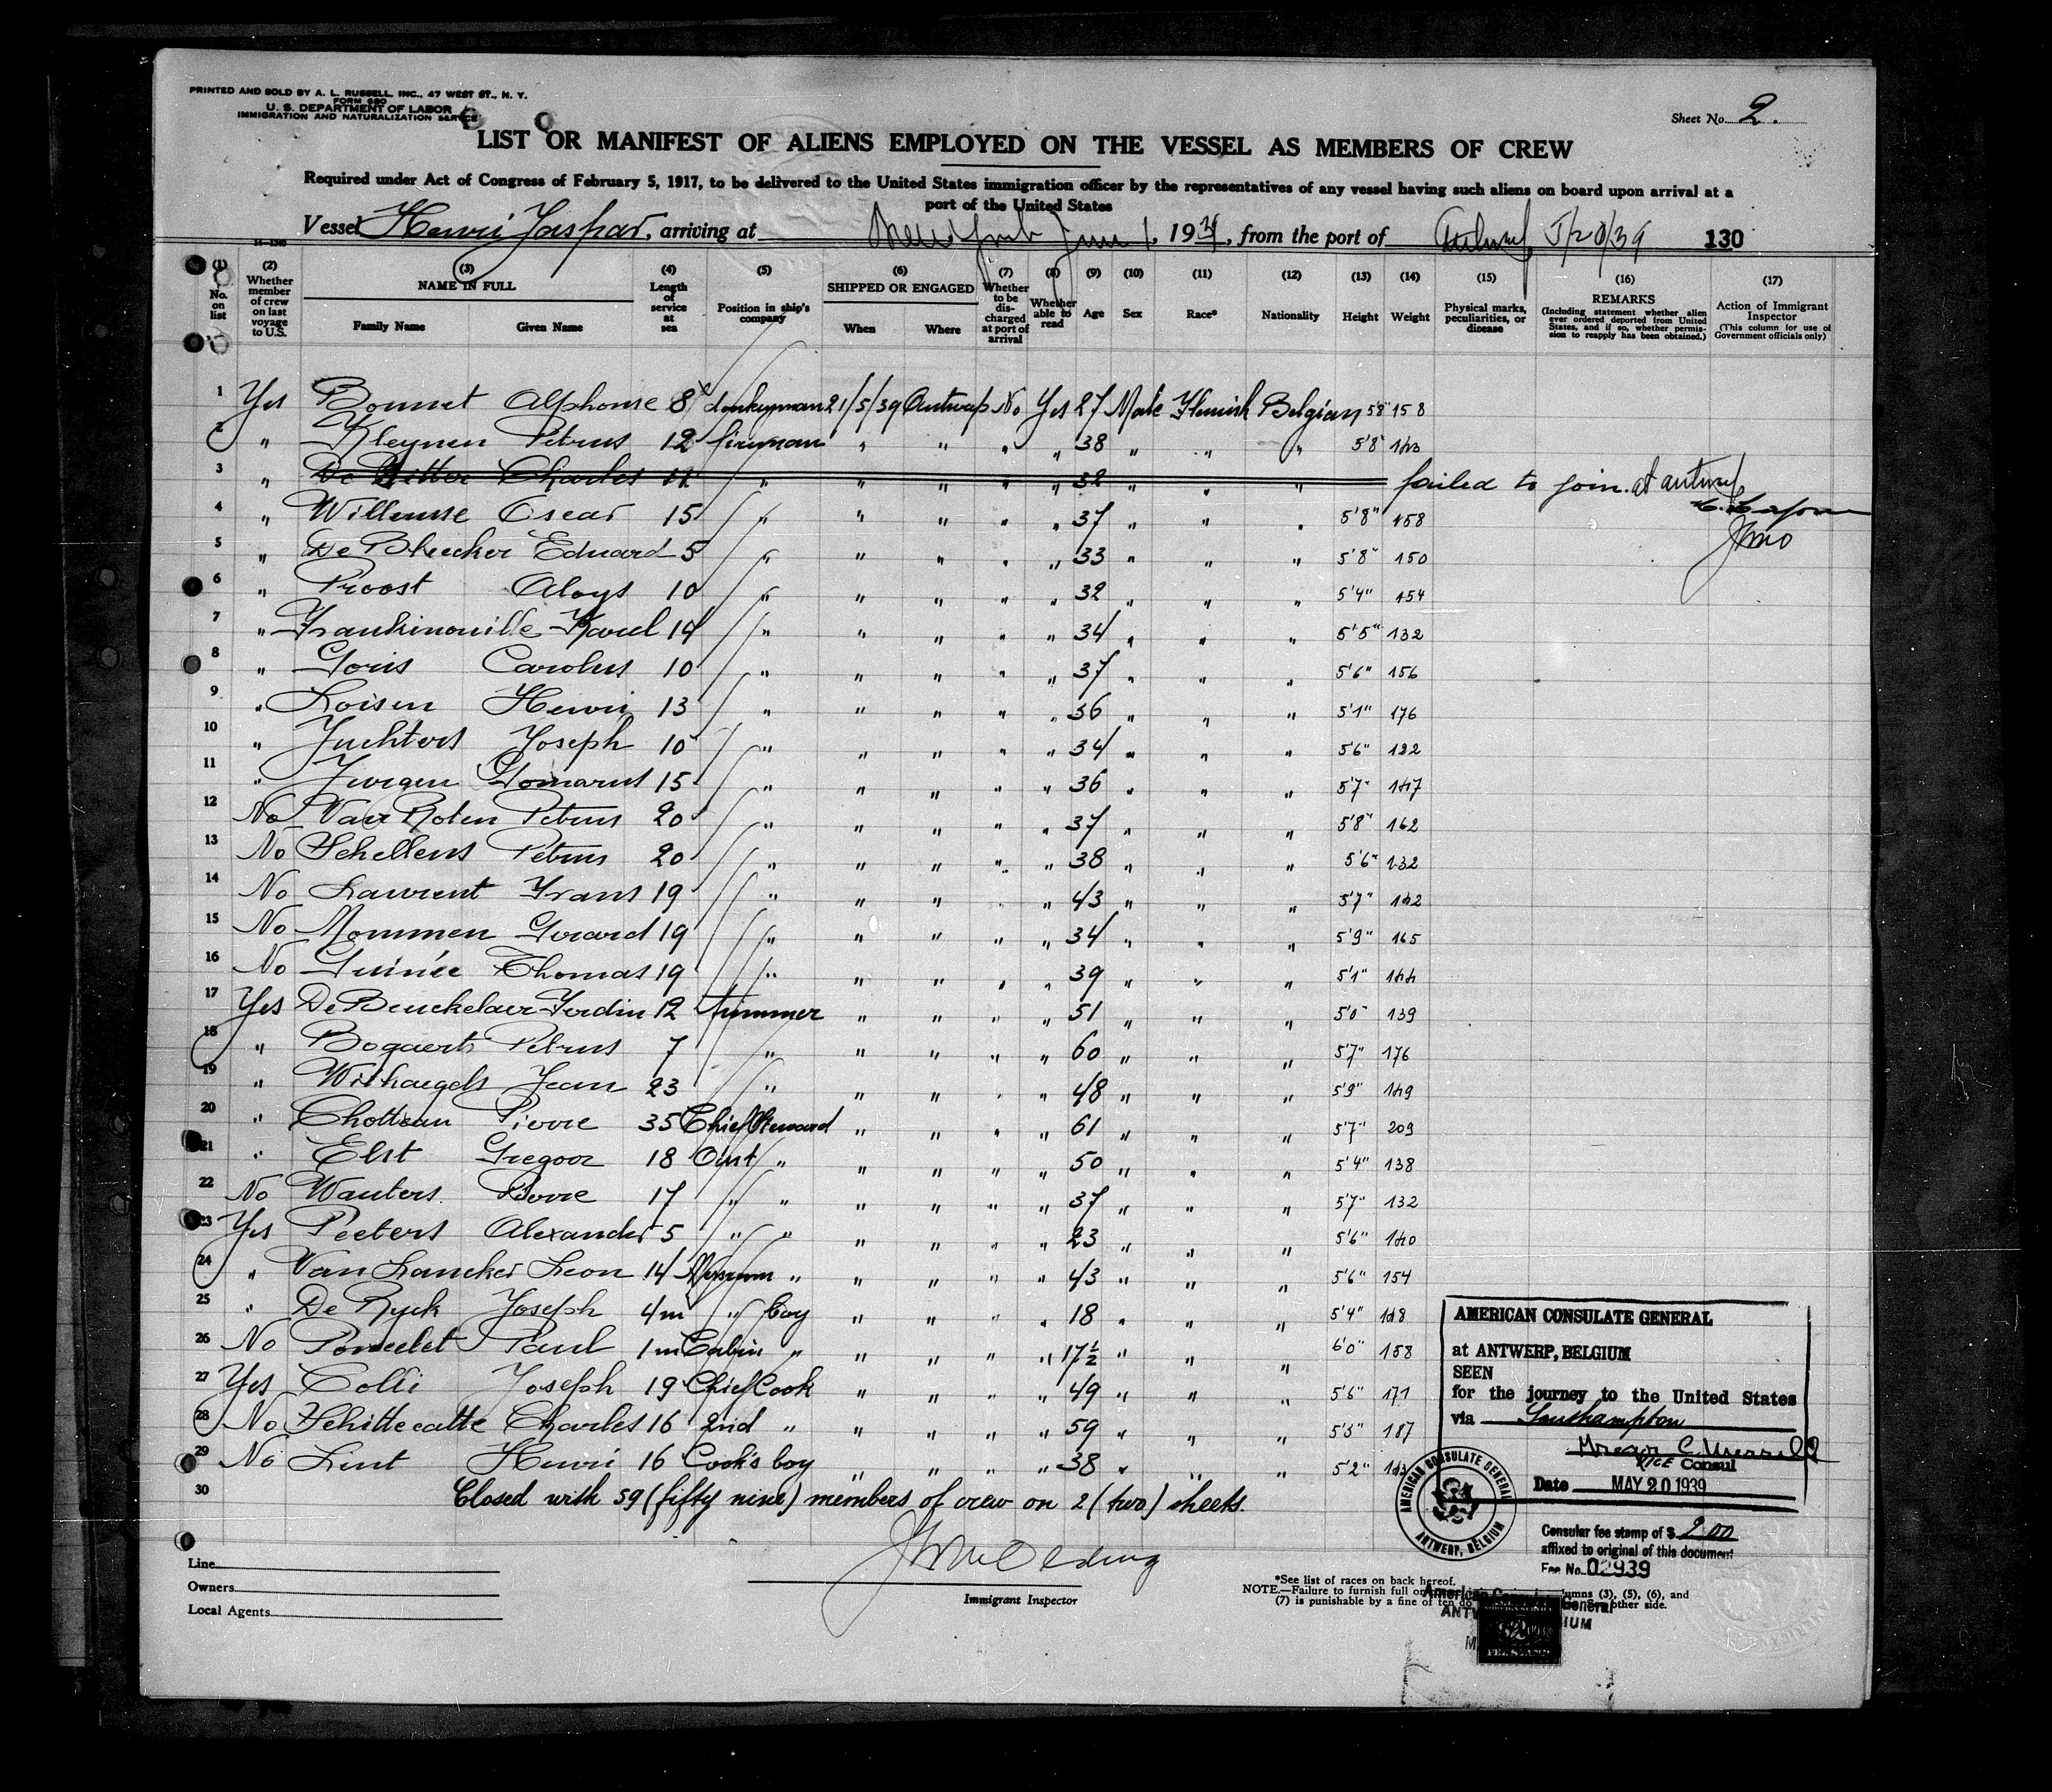 PRINTED AND SOLD BY A. L. RUSSELL, INC., 47 WEST ST., N. Y.
FORM 680
U. S. DEPARTMENT OF LABOR
IMMIGRATION AND NATURALIZATION SERVICE
Sheet No. 2.
LIST OR MANIFEST OF ALIENS EMPLOYED ON THE VESSEL AS MEMBERS OF CREW
Required under Act of Congress of February 5, 1917, to be delivered to the United States immigration officer by the representatives of any vessel having such aliens on board upon arrival at a
port of the United States
Vessel Henri Jaspar, arriving at June 1, 1939, from the port of Antwerp 5/20/39 130
(1) No. on list
(2) Whether member of crew on last voyage to U.S.
(3) NAME IN FULL Family Name Given Name
(4) Length of service at sea
(5) Position in ship's company
(6) SHIPPED OR ENGAGED When Where
(7) Whether to be discharged at port of arrival
(8) Whether able to read
(9) Age
(10) Sex
(11) Race*
(12) Nationality
(13) Height
(14) Weight
(15) Physical marks, peculiarities, or disease
(16) REMARKS (Including statement whether alien ever ordered deported from United States, and if so, whether permission to reapply has been obtained.)
(17) Action of Immigrant Inspector (This column for use of Government officials only)
1 Yes Bonnet Alphonse 8 donkeyman 21/5/39 Antwerp No Yes 27 Male Flemish Belgian 5'8" 158
2 " Kleynen Petrus 12 fireman " " " " 38 " " " 5'8" 143
3 " De Ritter Charles 11 " " " " " 32 " " " failed to join at Antwerp
4 " Willemse Oscar 15 " " " " " 37 " " " 5'8" 158
5 " De Bleecker Eduard 5 " " " " " 33 " " " 5'8" 150
6 " Proost Aloys 10 " " " " " 32 " " " 5'4" 154
7 " Frankinouille Karel 14 " " " " " 34 " " " 5'5" 132
8 " Goris Carolus 10 " " " " " 37 " " " 5'6" 156
9 " Loisen Henri 13 " " " " " 36 " " " 5'1" 176
10 " Juchters Joseph 10 " " " " " 34 " " " 5'6" 122
11 " Jurgen Gomarus 15 " " " " " 36 " " " 5'7" 147
12 No Van Roten Petrus 20 " " " " " 37 " " " 5'8" 162
13 No Schellens Petrus 20 " " " " " 38 " " " 5'6" 132
14 No Laurent Frans 19 " " " " " 43 " " " 5'7" 142
15 No Mommen Gerard 19 " " " " " 34 " " " 5'9" 165
16 No Guinée Thomas 19 " " " " " 39 " " " 5'1" 144
17 Yes De Beuckelaer Ferdin 12 Trimmer " " " " 51 " " " 5'0" 139
18 " Bogaerts Petrus 7 " " " " " 60 " " " 5'7" 176
19 " Withaegels Jean 23 " " " " " 48 " " " 5'9" 149
20 " Chotteau Pierre 35 Chief Steward " " " " 61 " " " 5'7" 209
21 " Elst Gregoor 18 " " " " " 50 " " " 5'4" 138
22 No Wauters Pierre 17 " " " " " " 37 " " " 5'7" 132
23 Yes Peeters Alexander 5 " " " " " " 23 " " " 5'6" 140
24 " Van Lancker Leon 14 Messroom " " " " " 43 " " " 5'6" 154
25 " De Ryck Joseph 4m " boy " " " " 18 " " " 5'4" 148
26 No Paul 1m Cabin " " " " " 17½ " " " 6'0" 158
27 Yes Colli Joseph 19 Chief Cook " " " " 49 " " " 5'6" 171
28 No Schittecatte Charles 16 2nd " " " " " 59 " " " 5'3" 187
29 No Lint Henri 16 Cook's boy " " " " 38 " " " 5'2" 143
30 Closed with 59 (fifty nine) members of crew on 2 (two) sheets.
AMERICAN CONSULATE GENERAL
at ANTWERP, BELGIUM
SEEN
for the journey to the United States
via Southampton
VICE Consul
Date MAY 20 1939
AMERICAN CONSULATE GENERAL ANTWERP, BELGIUM
Consular fee stamp of $ 2.00
affixed to original of this document
Fee No. 02939
Line
Owners
Local Agents
Immigrant Inspector
*See list of races on back hereof.
NOTE.—Failure to furnish full or columns (3), (5), (6), and
(7) is punishable by a fine of ten do other side.